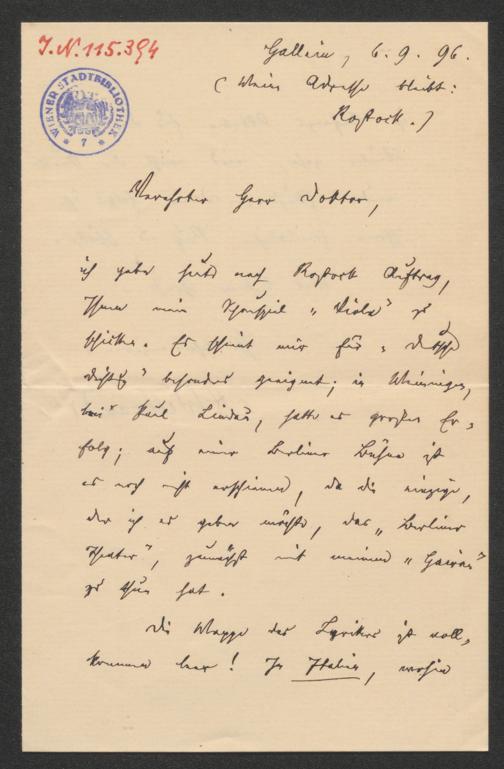 J.N. 115.394
WIENER STADTBIBLIOTHEK
* 7 *
Hallein, 6. 9. 96.
(Meine Adresse bleibt:
Rostock.)
Verehrter Herr Doktor,
ich gebe heute nach Rostock Auftrag,
Ihnen mein Schauspiel „Viola" zu
schicken. Es scheint mir für „Deutsche
Dichtg" besonders geeignet; in Meiningen,
bei Paul Lindau, hatte es großen Er-
folg; auf einer Berliner Bühne ist
es noch nicht erschienen, da die einzige,
der ich es geben möchte, das „Berliner
Theater", zunächst mit meinem
zu thun hat.
Die Mappe des Lyrikers ist voll-
kommen leer! In Italien, wohin